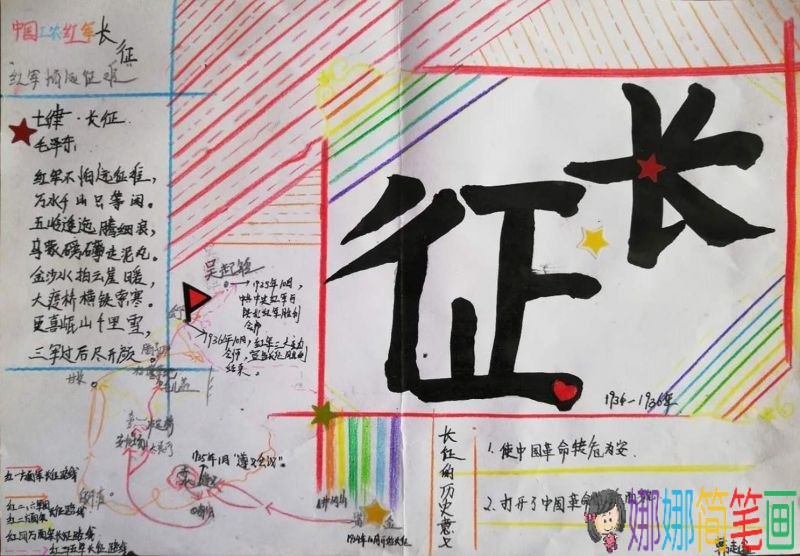 中国工农红军长征
红军不怕远征难
七律·长征
毛泽东
红军不怕远征难,
万水千山只等闲。
五岭逶迤腾细浪,
乌蒙磅礴走泥丸。
金沙水拍云崖暖,
大渡桥横铁索寒。
更喜岷山千里雪,
三军过后尽开颜
长征
1934—1936年
吴起镇
1935年10月,
中共中央红军与
陕北红军胜利
会师
1936年10月,红军三大主力
会师,宣告长征胜利
结束。
甘孜
1935年1月"遵义会议".
遵义
井冈山
瑞金
1934年10月开始长征
长征的历史意义
1.使中国革命转危为安
2.打开了中国革命
娜娜简笔画